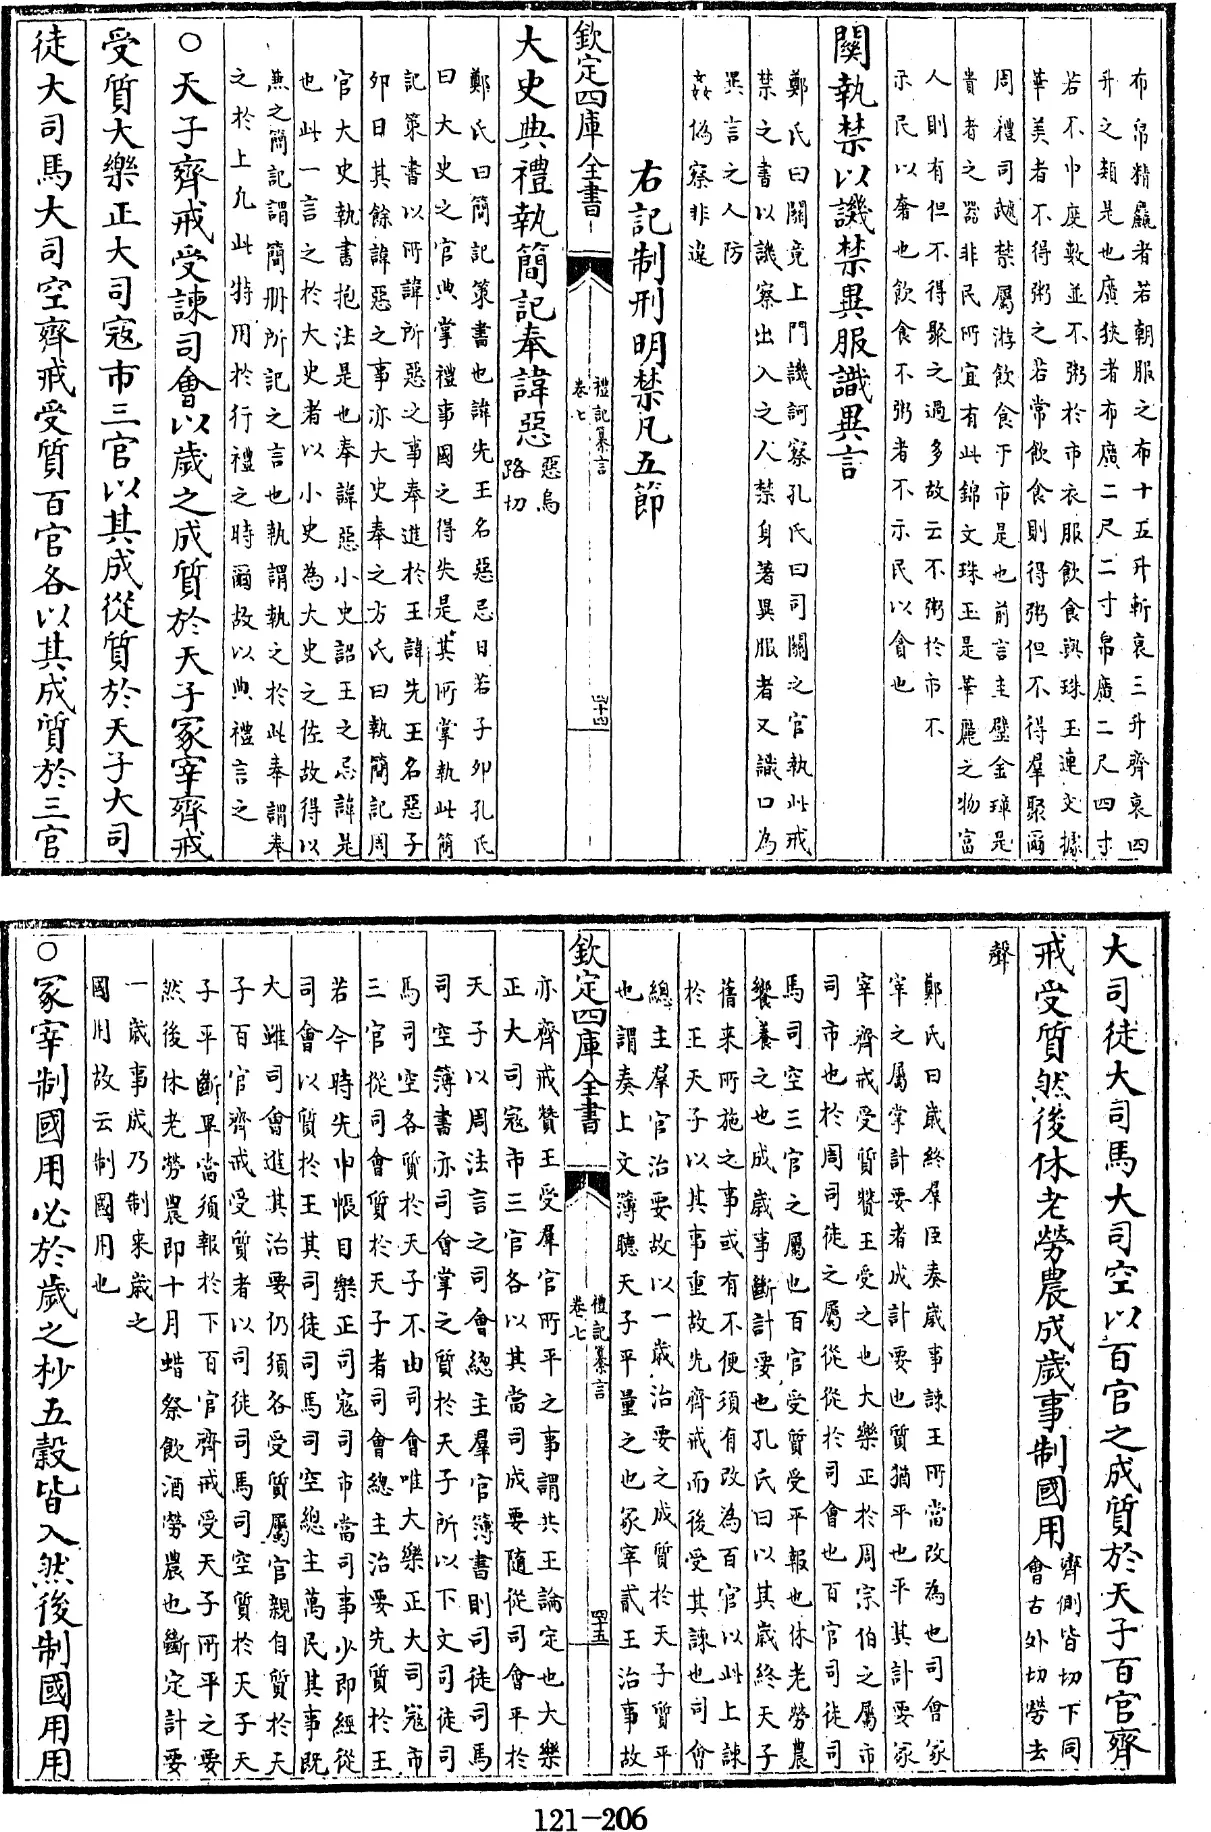 布帛精麤者若朝服之布十五升斬衰三升齊衰四
升之類是也廣狹者布廣二尺二寸帛廣二尺四寸
若不中度數並不粥於市衣服飲食與珠玉連文據
華美者不得粥之若常飲食則得粥但不得羣聚爾
周禮司虣禁屬游飲食于市是也前言圭璧金璋是
貴者之器非民所宜有此錦文珠玉是華麗之物富
人則有但不得聚之過多故云不粥於市不
示民以奢也飲食不粥者不示民以貪也
關執禁以譏禁異服識異言
鄭氏曰關竟上門譏訶察孔氏曰司關之官執此戒
禁之書以譏察出入之人禁身著異服者又識口為
異言之人防
姦偽察非違
右記制刑明禁凡五節
欽定四庫全書
禮記纂言
卷七
四十四
大史典禮執簡記奉諱惡
惡烏
路切
鄭氏曰簡記策書也諱先王名惡忌日若子卯孔氏
曰大史之官典掌禮事國之得失是其所掌執此簡
記策書以所諱所惡之事奉進於王諱先王名惡子
卯日其餘諱惡之事亦大史奉之方氏曰執簡記周
官大史執書抱法是也奉諱惡小史詔王之忌諱是
也此一言之於大史者以小史為大史之佐故得以
兼之簡記謂簡冊所記之言也執謂執之於此奉謂奉
之於上凡此特用於行禮之時爾故以典禮言之
○天子齊戒受諫司會以歲之成質於天子冢宰齊戒
受質大樂正大司寇市三官以其成從質於天子大司
徒大司馬大司空齊戒受質百官各以其成質於三官
大司徒大司馬大司空以百官之成質於天子百官齊
戒受質然後休老勞農成歲事制國用
齊側皆切下同
會古外切勞去
聲
鄭氏曰歲終羣臣奏歲事諫王所當改為也司會冢
宰之屬掌計要者成計要也質猶平也平其計要冢
宰齊戒受質贊王受之也大樂正於周宗伯之屬市
司市也於周司徒之屬從從於司會也百官司徒司
馬司空三官之屬也百官受質受平報也休老勞農
饗養之也成歲事斷計要也孔氏曰以其歲終天子
舊來所施之事或有不便須有改為百官以此上諫
於王天子以其事重故先齊戒而後受其諫也司會
總主羣官治要故以一歲治要之成質於天子質平
也謂奏上文簿聽天子平量之也冢宰貳王治事故
欽定四庫全書
禮記纂言
卷七
四十五
亦齊戒贊王受羣官所平之事謂共王論定也大樂
正大司寇市三官各以其當司成要隨從司會平於
天子以周法言之司會總主羣官簿書則司徒司馬
司空簿書亦司會掌之質於天子所以下文司徒司
馬司空各質於天子不由司會唯大樂正大司寇市
三官從司會質於天子者司會總主治要先質於王
若今時先申帳目樂正司寇司市當司事少即經從
司會以質於王其司徒司馬司空總主萬民其事既
大雖司會進其治要仍須各受質屬官親自質於天
子百官齊戒受質者以司徒司馬司空質於天子天
子平斷畢當須報於下百官齊戒受天子所平之要
然後休老勞農即十月蜡祭飲酒勞農也斷定計要
一歲事成乃制來歲之
國用故云制國用也
○冢宰制國用必於歲之杪五穀皆入然後制國用用
121—206